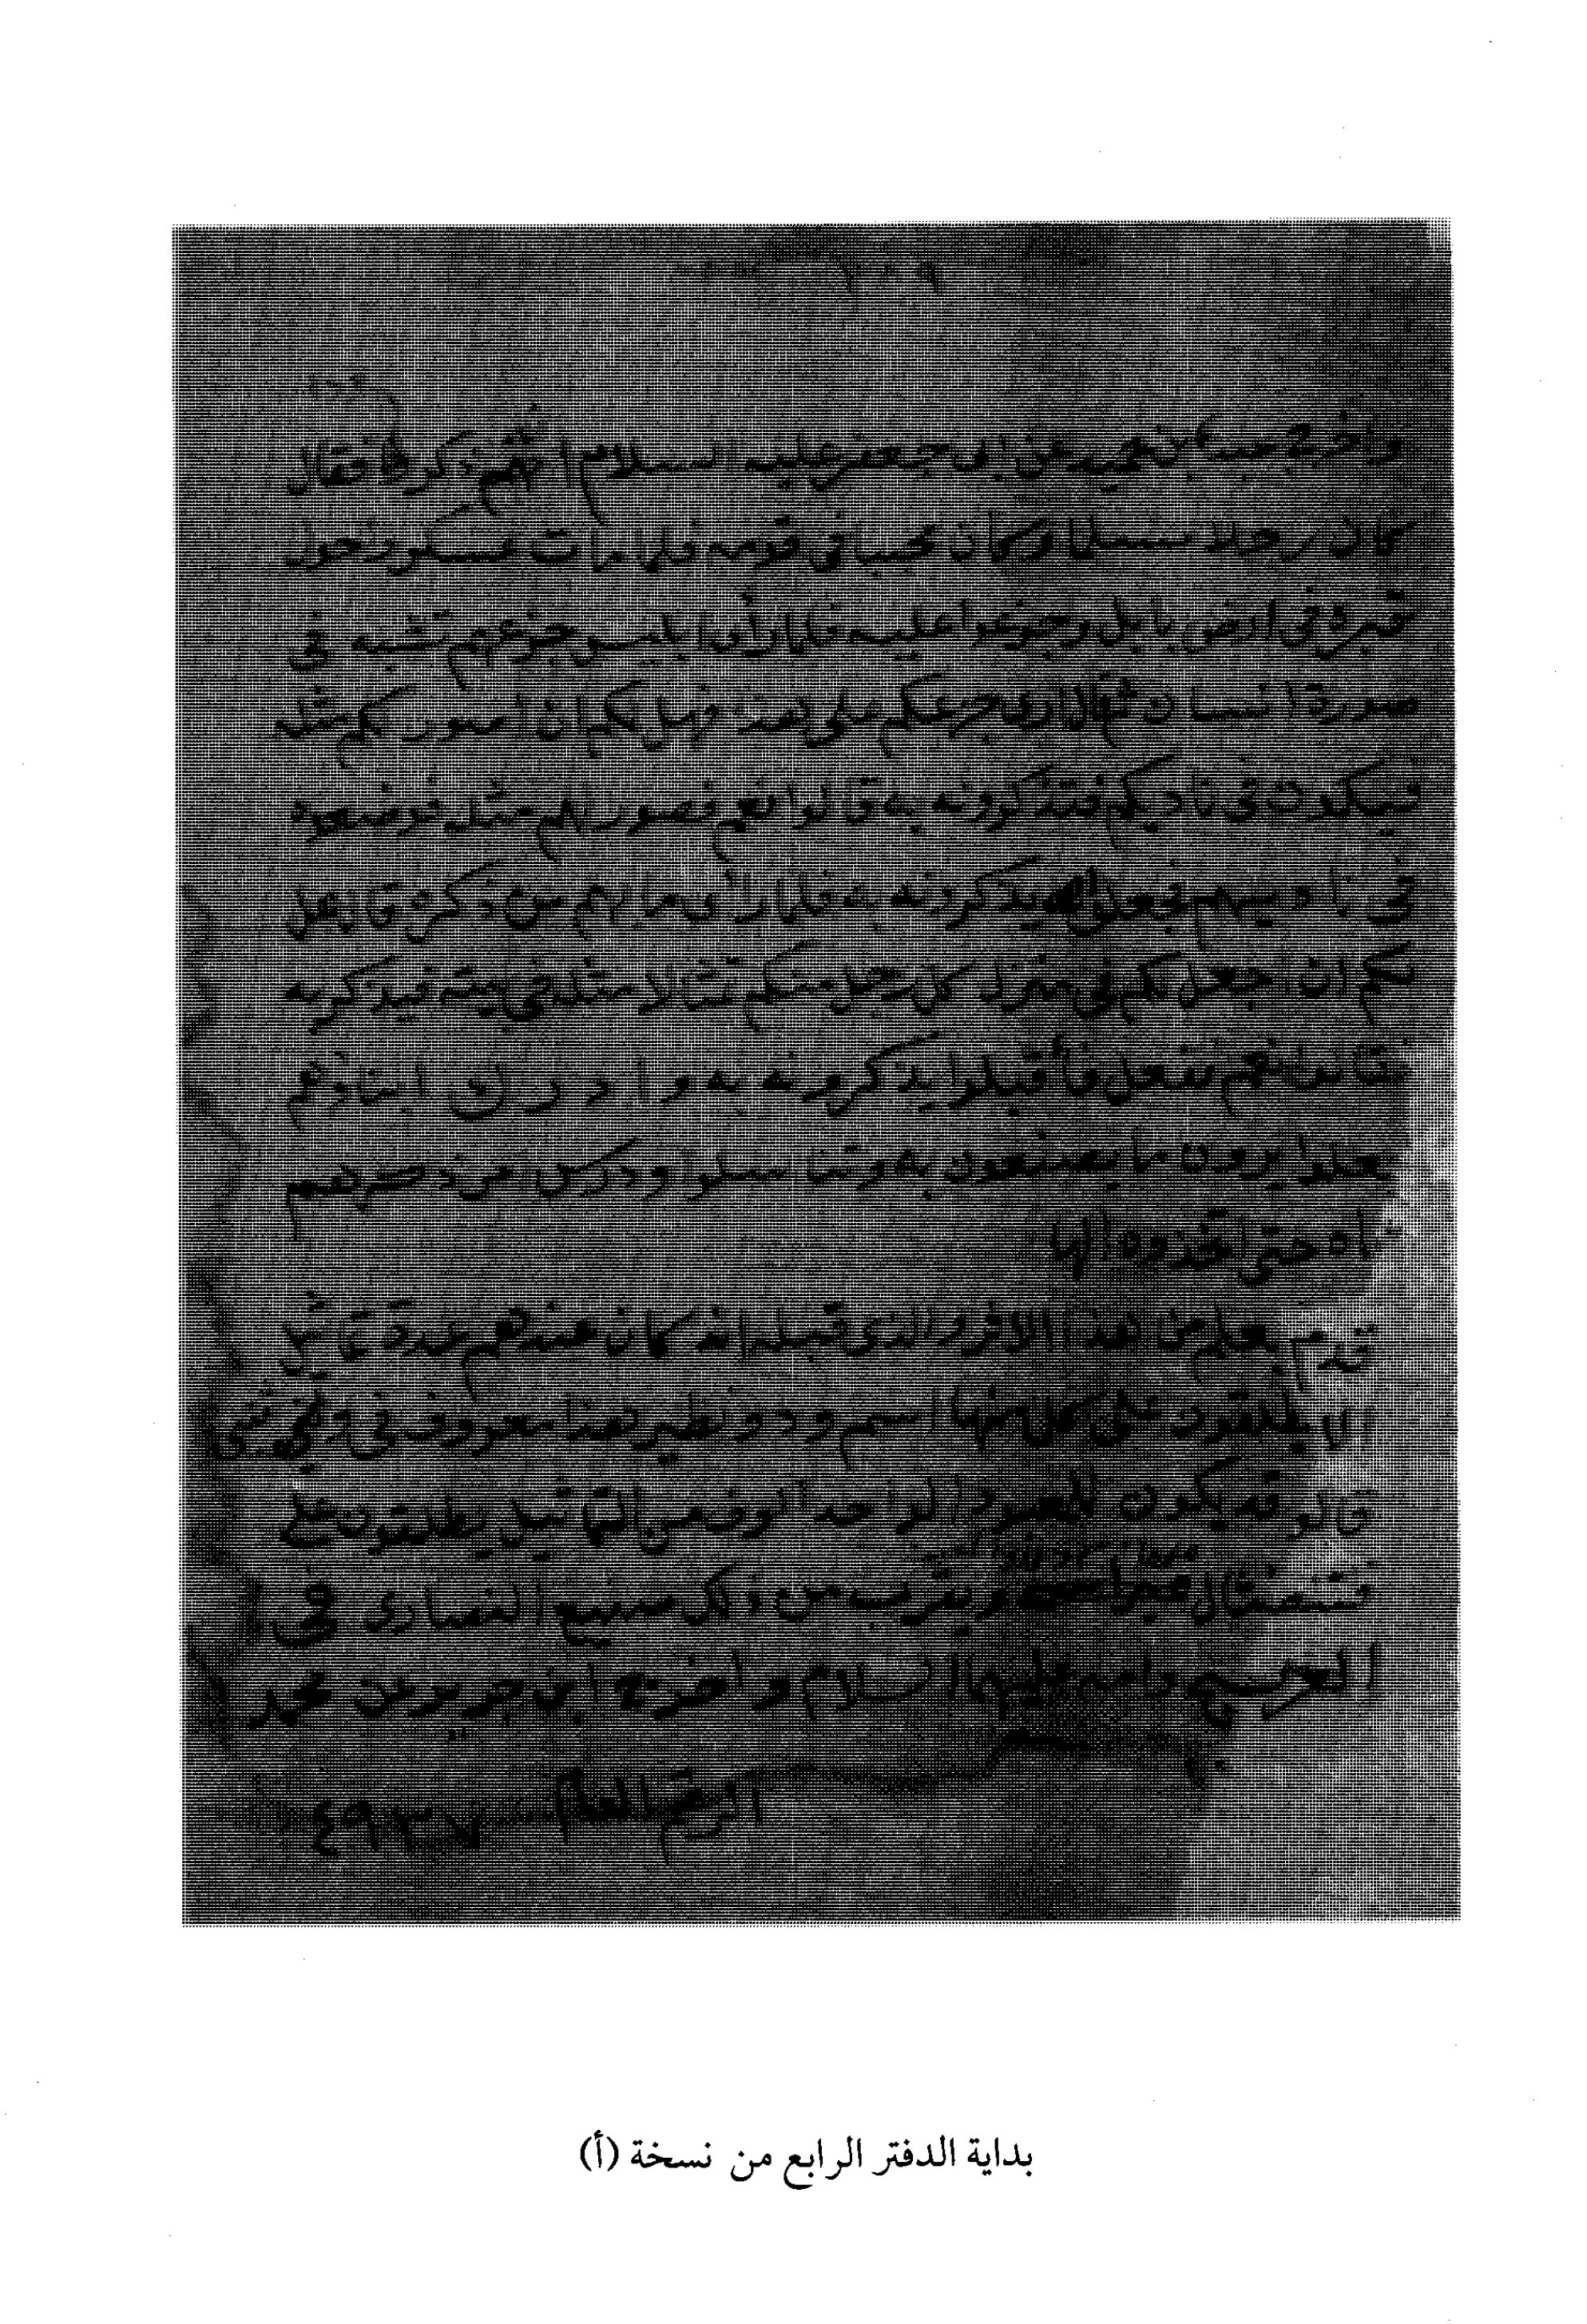 واخرج عبد بن حميد عن ابي جعفر عليه السلام انهم ذكر فقال
كان رجلا مسلما وكان محببا في قومه فلما مات عسكروا حول
قبره في ارض بابل وجزعوا عليه فلما رأى ابليس جزعهم تشبه في
صورة انسان ثم قال ارى جزعكم على هذا فهل لكم ان اصور لكم مثله
فيكون في ناديكم فتذكرونه به قالوا نعم فصور لهم مثله فوضعوه
في ناديهم فجعلوا يذكرونه به فلما رأى ما لهم من ذكره قال هل
لكم ان اجعل لكم في منزل كل رجل منكم تمثالا مثله في بيته فيذكر به
فقالوا نعم ففعل فأقبلوا يذكرونه به وادرك ابناؤهم
فجعلوا يرون ما يصنعون به وتناسلوا ودرس امر ذكرهم
اياه حتى اتخذوه الها
قدم يعلم من هذا الاثر والذي قبله انه كان عندهم عدة تماثيل
يطلقون على كل منها اسم ود ونظير هذا معروف في
قالو قد يكون للمعبود الواحد الوف من التماثيل يطلقون على
تمثال ويقرب من ذلك صنيع النصارى في
المسيح وامه عليهما السلام واخرج ابن جرير عن محمد
الرقم العام ٤٩٣٧
بداية الدفتر الرابع من نسخة (أ)